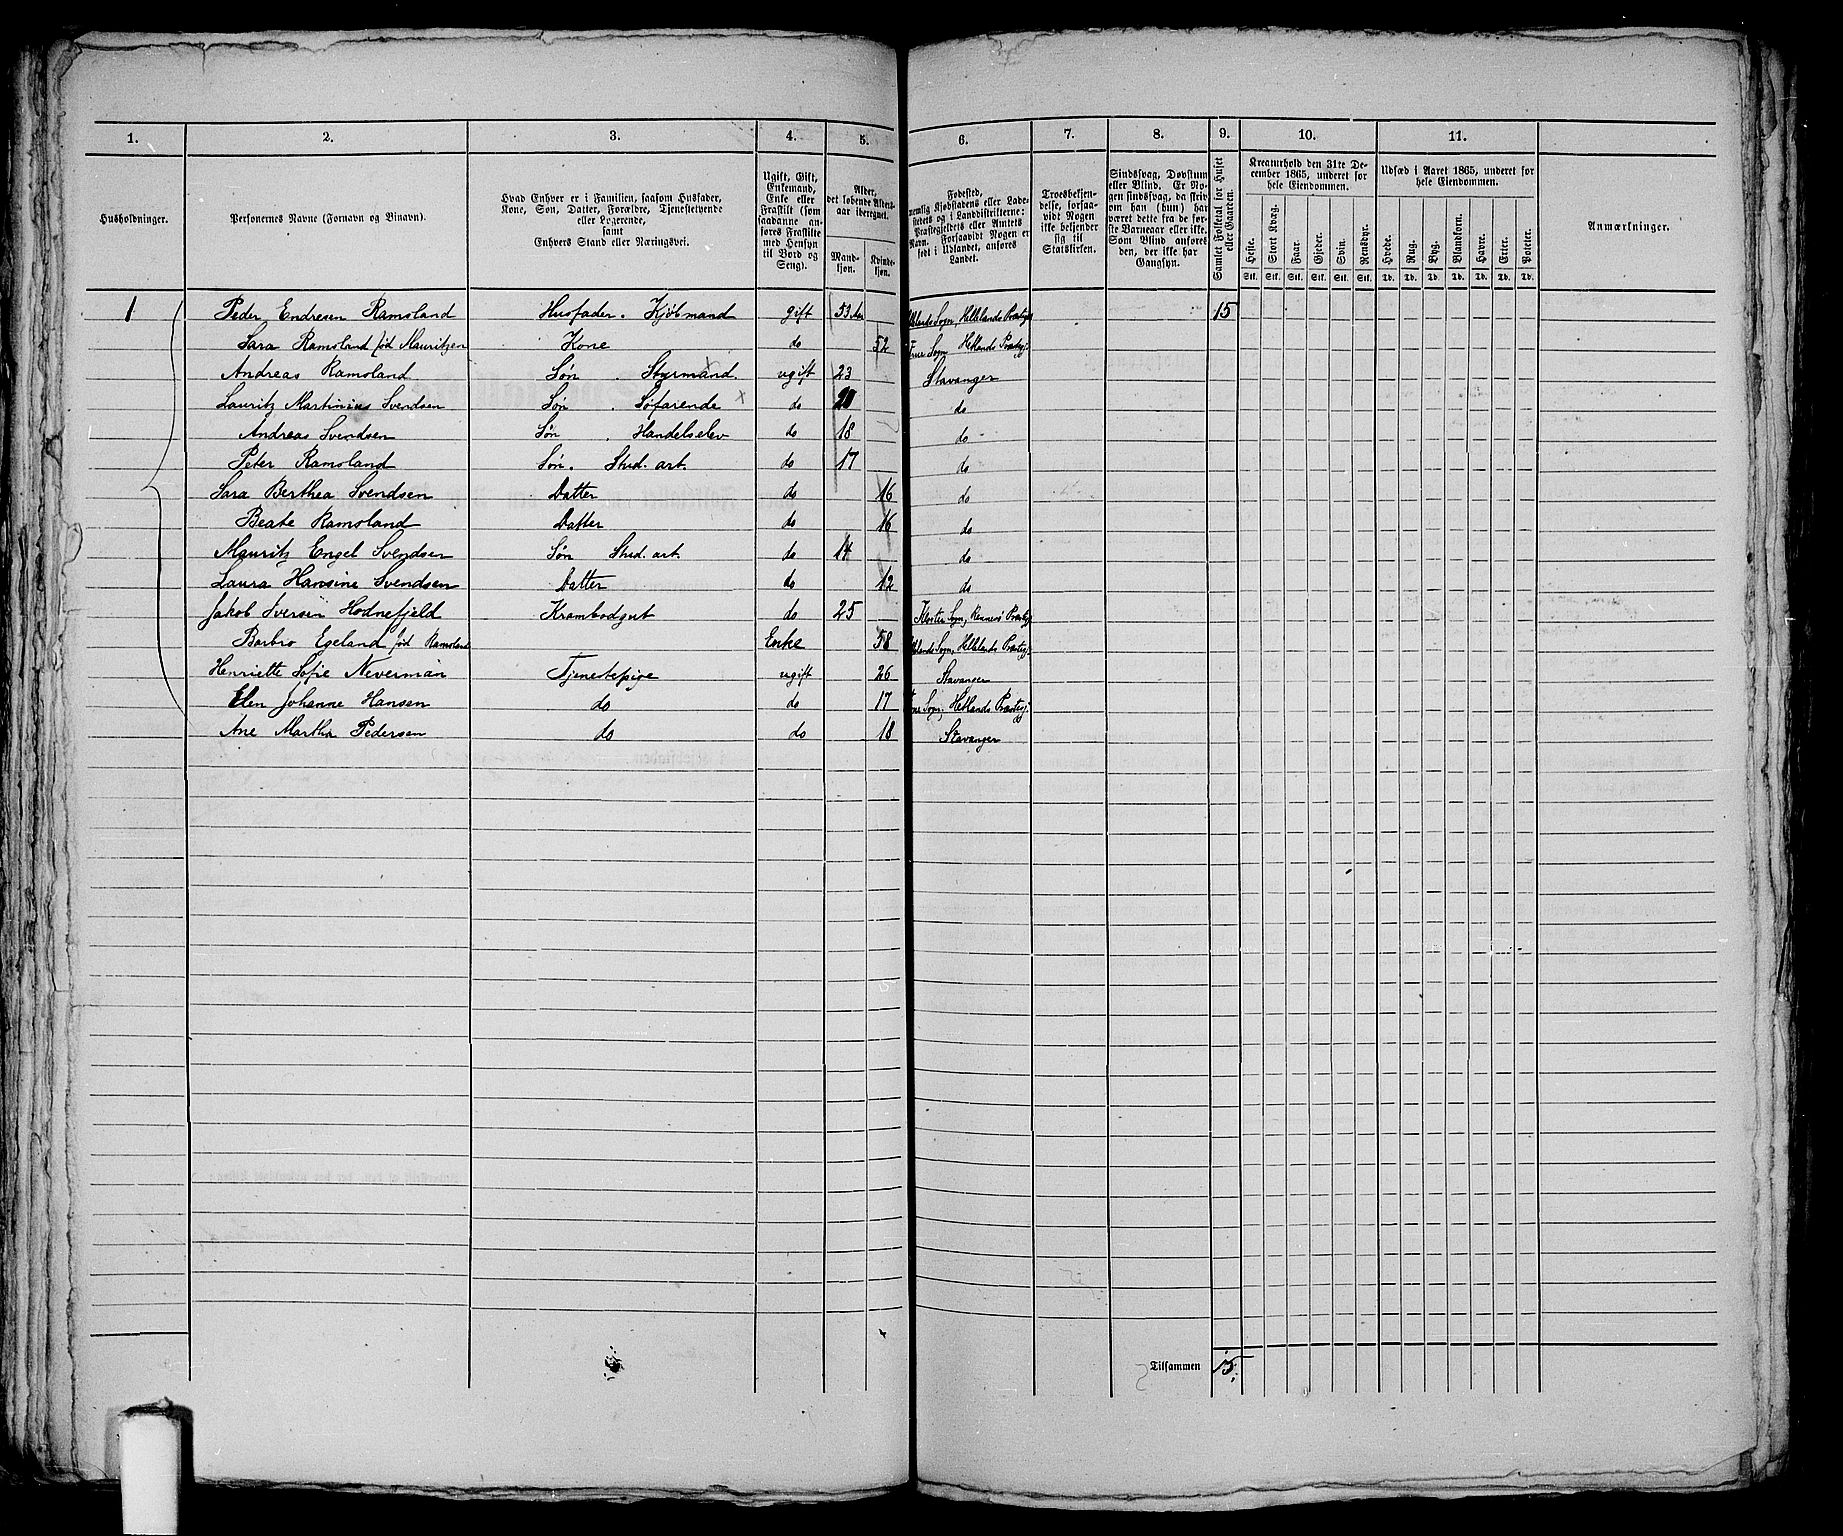 1. 2. 3. 4. 5. 6. 7. 8. 9. 10. 11.
Husholdninger.
Personernes Navne (Fornavn og Binavn).
Hvad Enhver er i Familien, saasom Husfader,
Kone, Søn, Datter, Forældre, Tjenestetyende
eller Logerende,
samt
Enhvers Stand eller Næringsvei.
Ugift, Gift,
Enkemand,
Enke eller
Fraskilt (som
saadanne anføres Fraskilte
med Hensyn
til Bord og
Seng).
Alder,
det løbende Aldersaar iberegnet.
Mandkjøn.
Kvindekjøn.
Fødested,
nemlig Kjøbstadens eller Ladestedets og i Landdistrikterne:
Præstegjeldets eller Amtets
Navn. Forsaavidt Nogen er
født i Udlandet, anføres
Landet.
Troesbekjendelse, forsaavidt Nogen
ikke bekjender
sig til
Statskirken.
Sindssvag, Døvstum
eller Blind. Er Nogen sindssvag, da skrives om han (hun) har
været dette fra de første Barneaar eller ikke.
Som Blind anføres
den, der ikke har
Gangsyn.
Samlet Folketal for Huset
eller Gaarden.
Kreaturhold den 31te December 1865, underet for
hele Eiendommen.
Heste. Stort Kvæg. Faar. Gjeder. Svin. Rensdyr.
Stk. Stk. Stk. Stk. Stk. Stk.
Udsæd i Aaret 1865, underet for
hele Eiendommen.
Hvede. Rug. Byg. Blandkorn. Havre. Erter. Poteter.
Td. Td. Td. Td. Td. Td. Td.
Anmærkninger.
1 Peder Endresen Ramsland Husfader. Kjøbmand gift 53 Sogn, Hellelands Præstegj 15
Sara Ramsland fød Mauritzen Kone do 52 Sogn Hetlands Præstegj.
Andreas Ramsland Søn . Styrmand. ugift 23 Stavanger
Lauritz Martinius Svendsen Søn . Søfarende x do do
Andreas Svendsen Søn . Handelselev do 18 do
Peter Ramsland Søn. Stud. art. do 17 do
Sara Berthea Svendsen Datter do 16 do
Beate Ramsland Datter do 16 do
Mauritz Engel Svendsen Søn Stud. art. do 14 do
Laura Hansine Svendsen Datter do 12 do
Jakob Iversen Hodnefjeld Krambodgut do 25 Kloster Sogn, Rennesø Præstegj
Barbro Egeland fød Ramsland Enke 58 Sogn, Hellelands Præstegj.
Henriette Sofie Neverman Tjenestepige ugift 26 Stavanger
Elen Johanne Hansen do do 17 Sogn, Hetlands Præstegj.
Ane Martha Pedersen do do 18 Stavanger
Tilsammen 15.